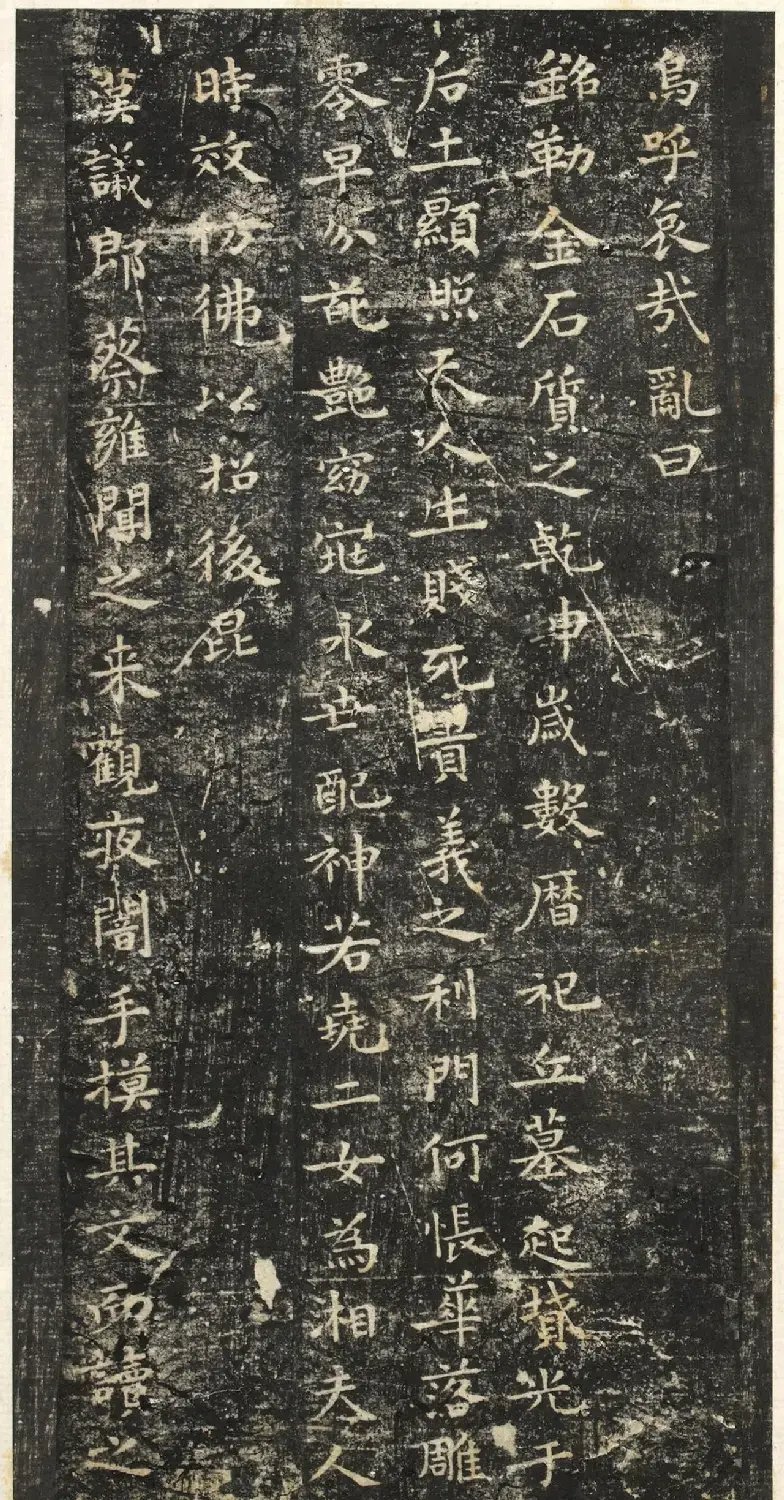 烏呼哀哉亂曰
銘勒金石質之乾申歲數暦祀丘墓起墳光于
后土顯照天人生賤死貴義之利門何悵華落雕
零早分葩艷窈窕永世配神若堯二女為湘夫人
時效仿彿以招後昆
漢議郎蔡雍聞之来觀夜闇手摸其文而讀之